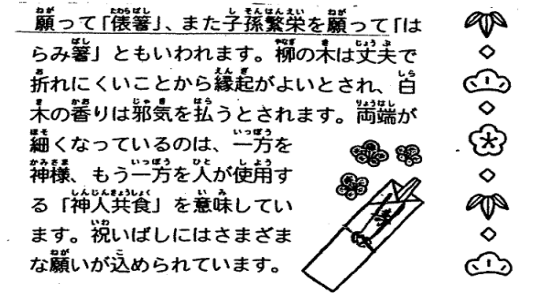 願って「俵箸」、また子孫繁栄を願って「は
らみ箸」ともいわれます。柳の木は丈夫で
折れにくいことから縁起がよいとされ、白
木の香りは邪気を払うとされます。両端が
細くなっているのは、一方を
神様、もう一方を人が使用す
る「神人共食」を意味してい
ます。祝いばしにはさまざま
な願いが込められています。
寿